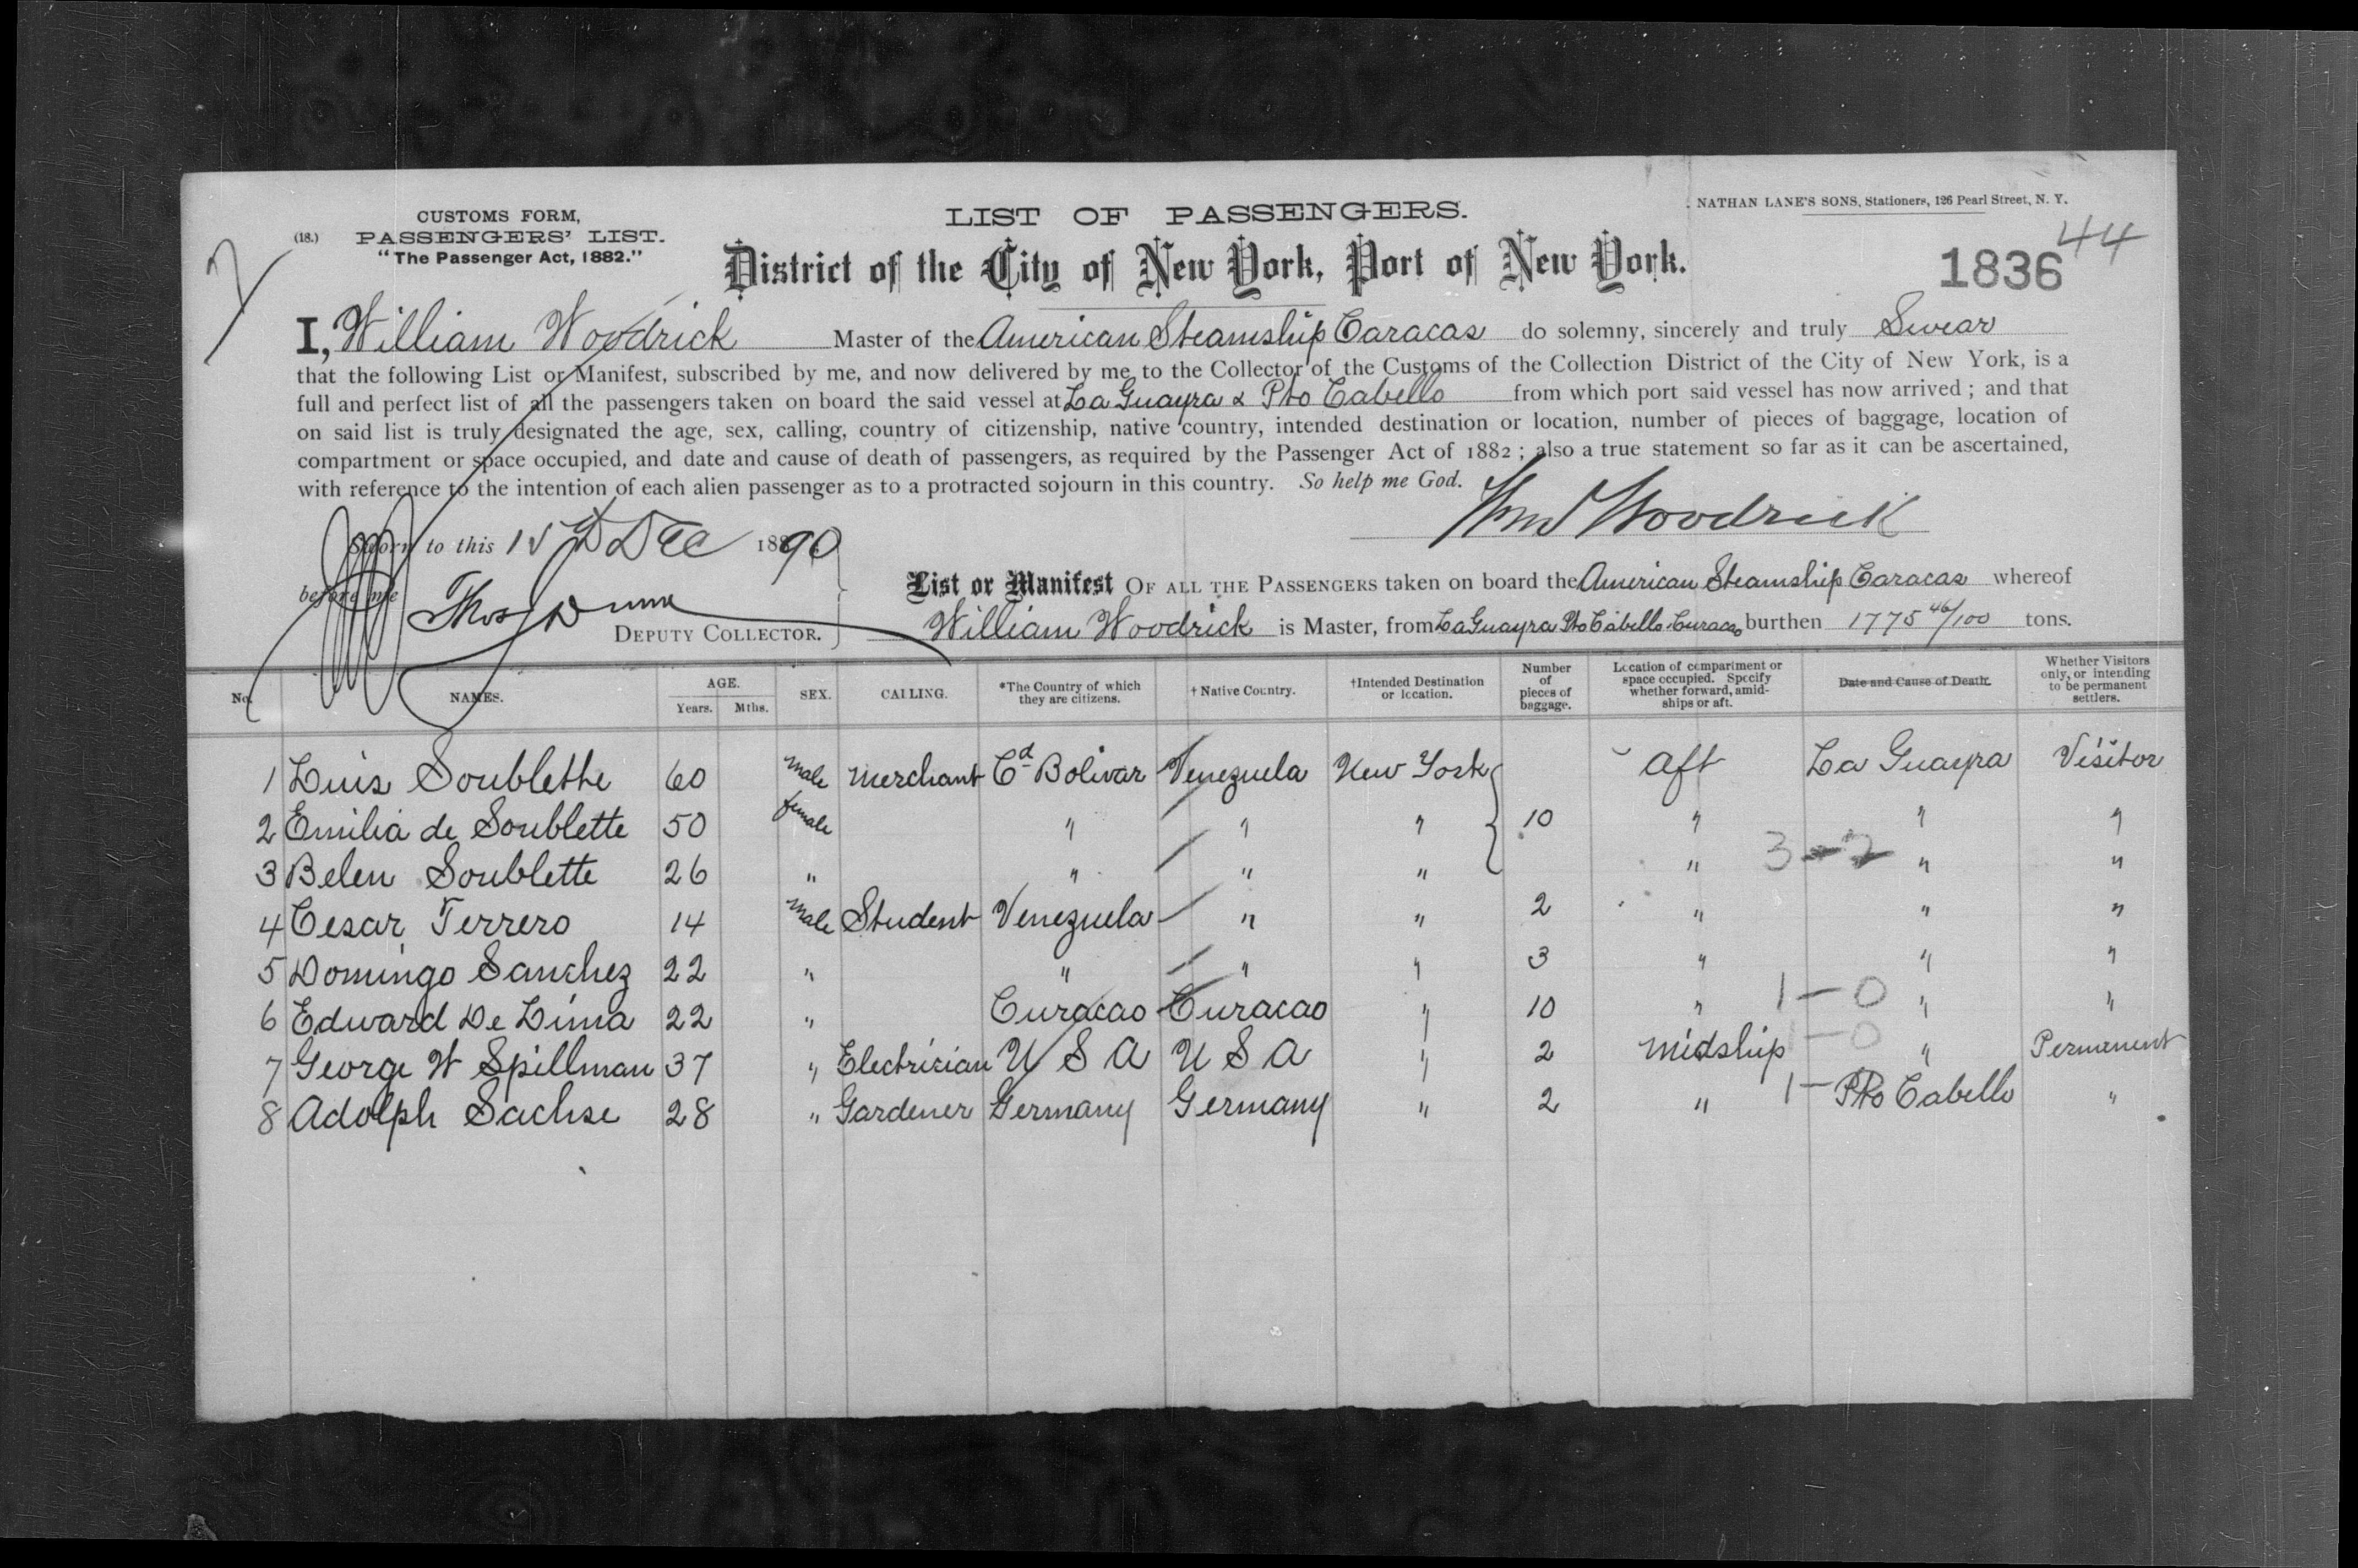 CUSTOMS FORM,
(18.) PASSENGERS' LIST.
"The Passenger Act, 1882."
LIST OF PASSENGERS.
NATHAN LANE'S SONS, Stationers, 126 Pearl Street, N. Y.
District of the City of New York, Port of New York.
44
1836
I, William Woodrick Master of the American Steamship Caracas do solemny, sincerely and truly Swear
that the following List or Manifest, subscribed by me, and now delivered by me to the Collector of the Customs of the Collection District of the City of New York, is a
full and perfect list of all the passengers taken on board the said vessel at La Guayra & Pto Cabello from which port said vessel has now arrived ; and that
on said list is truly designated the age, sex, calling, country of citizenship, native country, intended destination or location, number of pieces of baggage, location of
compartment or space occupied, and date and cause of death of passengers, as required by the Passenger Act of 1882 ; also a true statement so far as it can be ascertained,
with reference to the intention of each alien passenger as to a protracted sojourn in this country. So help me God.
Wm Woodrick
Sworn to this 15th Dec 1890
before me Thos Dunn
DEPUTY COLLECTOR.
List or Manifest OF ALL THE PASSENGERS taken on board the American Steamship Caracas whereof
William Woodrick is Master, from La Guayra Pto Cabello Curacao burthen 1775 46/100 tons.
No. NAMES. AGE. Years. Mths. SEX. CALLING. *The Country of which they are citizens. † Native Country. †Intended Destination or location. Number of pieces of baggage. Location of compartment or space occupied. Specify whether forward, amidships or aft. Date and Cause of Death. Whether Visitors only, or intending to be permanent settlers.
1 Luis Soublette 60 male Merchant Cd Bolivar Venezuela New York aft La Guayra Visitor
2 Emilia de Soublette 50 female " " " 10 " " "
3 Belen Soublette 26 " " " " " 3-2 " "
4 Cesar Terrero 14 male Student Venezuela " " 2 " " "
5 Domingo Sanchez 22 " " " " 3 " " "
6 Edward De Lima 22 " Curacao Curacao " 10 " 1-0 " "
7 George W Spillman 37 " Electrician U S A U S A " 2 Midship 1-0 " Permanent
8 Adolph Sachse 28 " Gardener Germany Germany " 2 " 1- Pto Cabello "